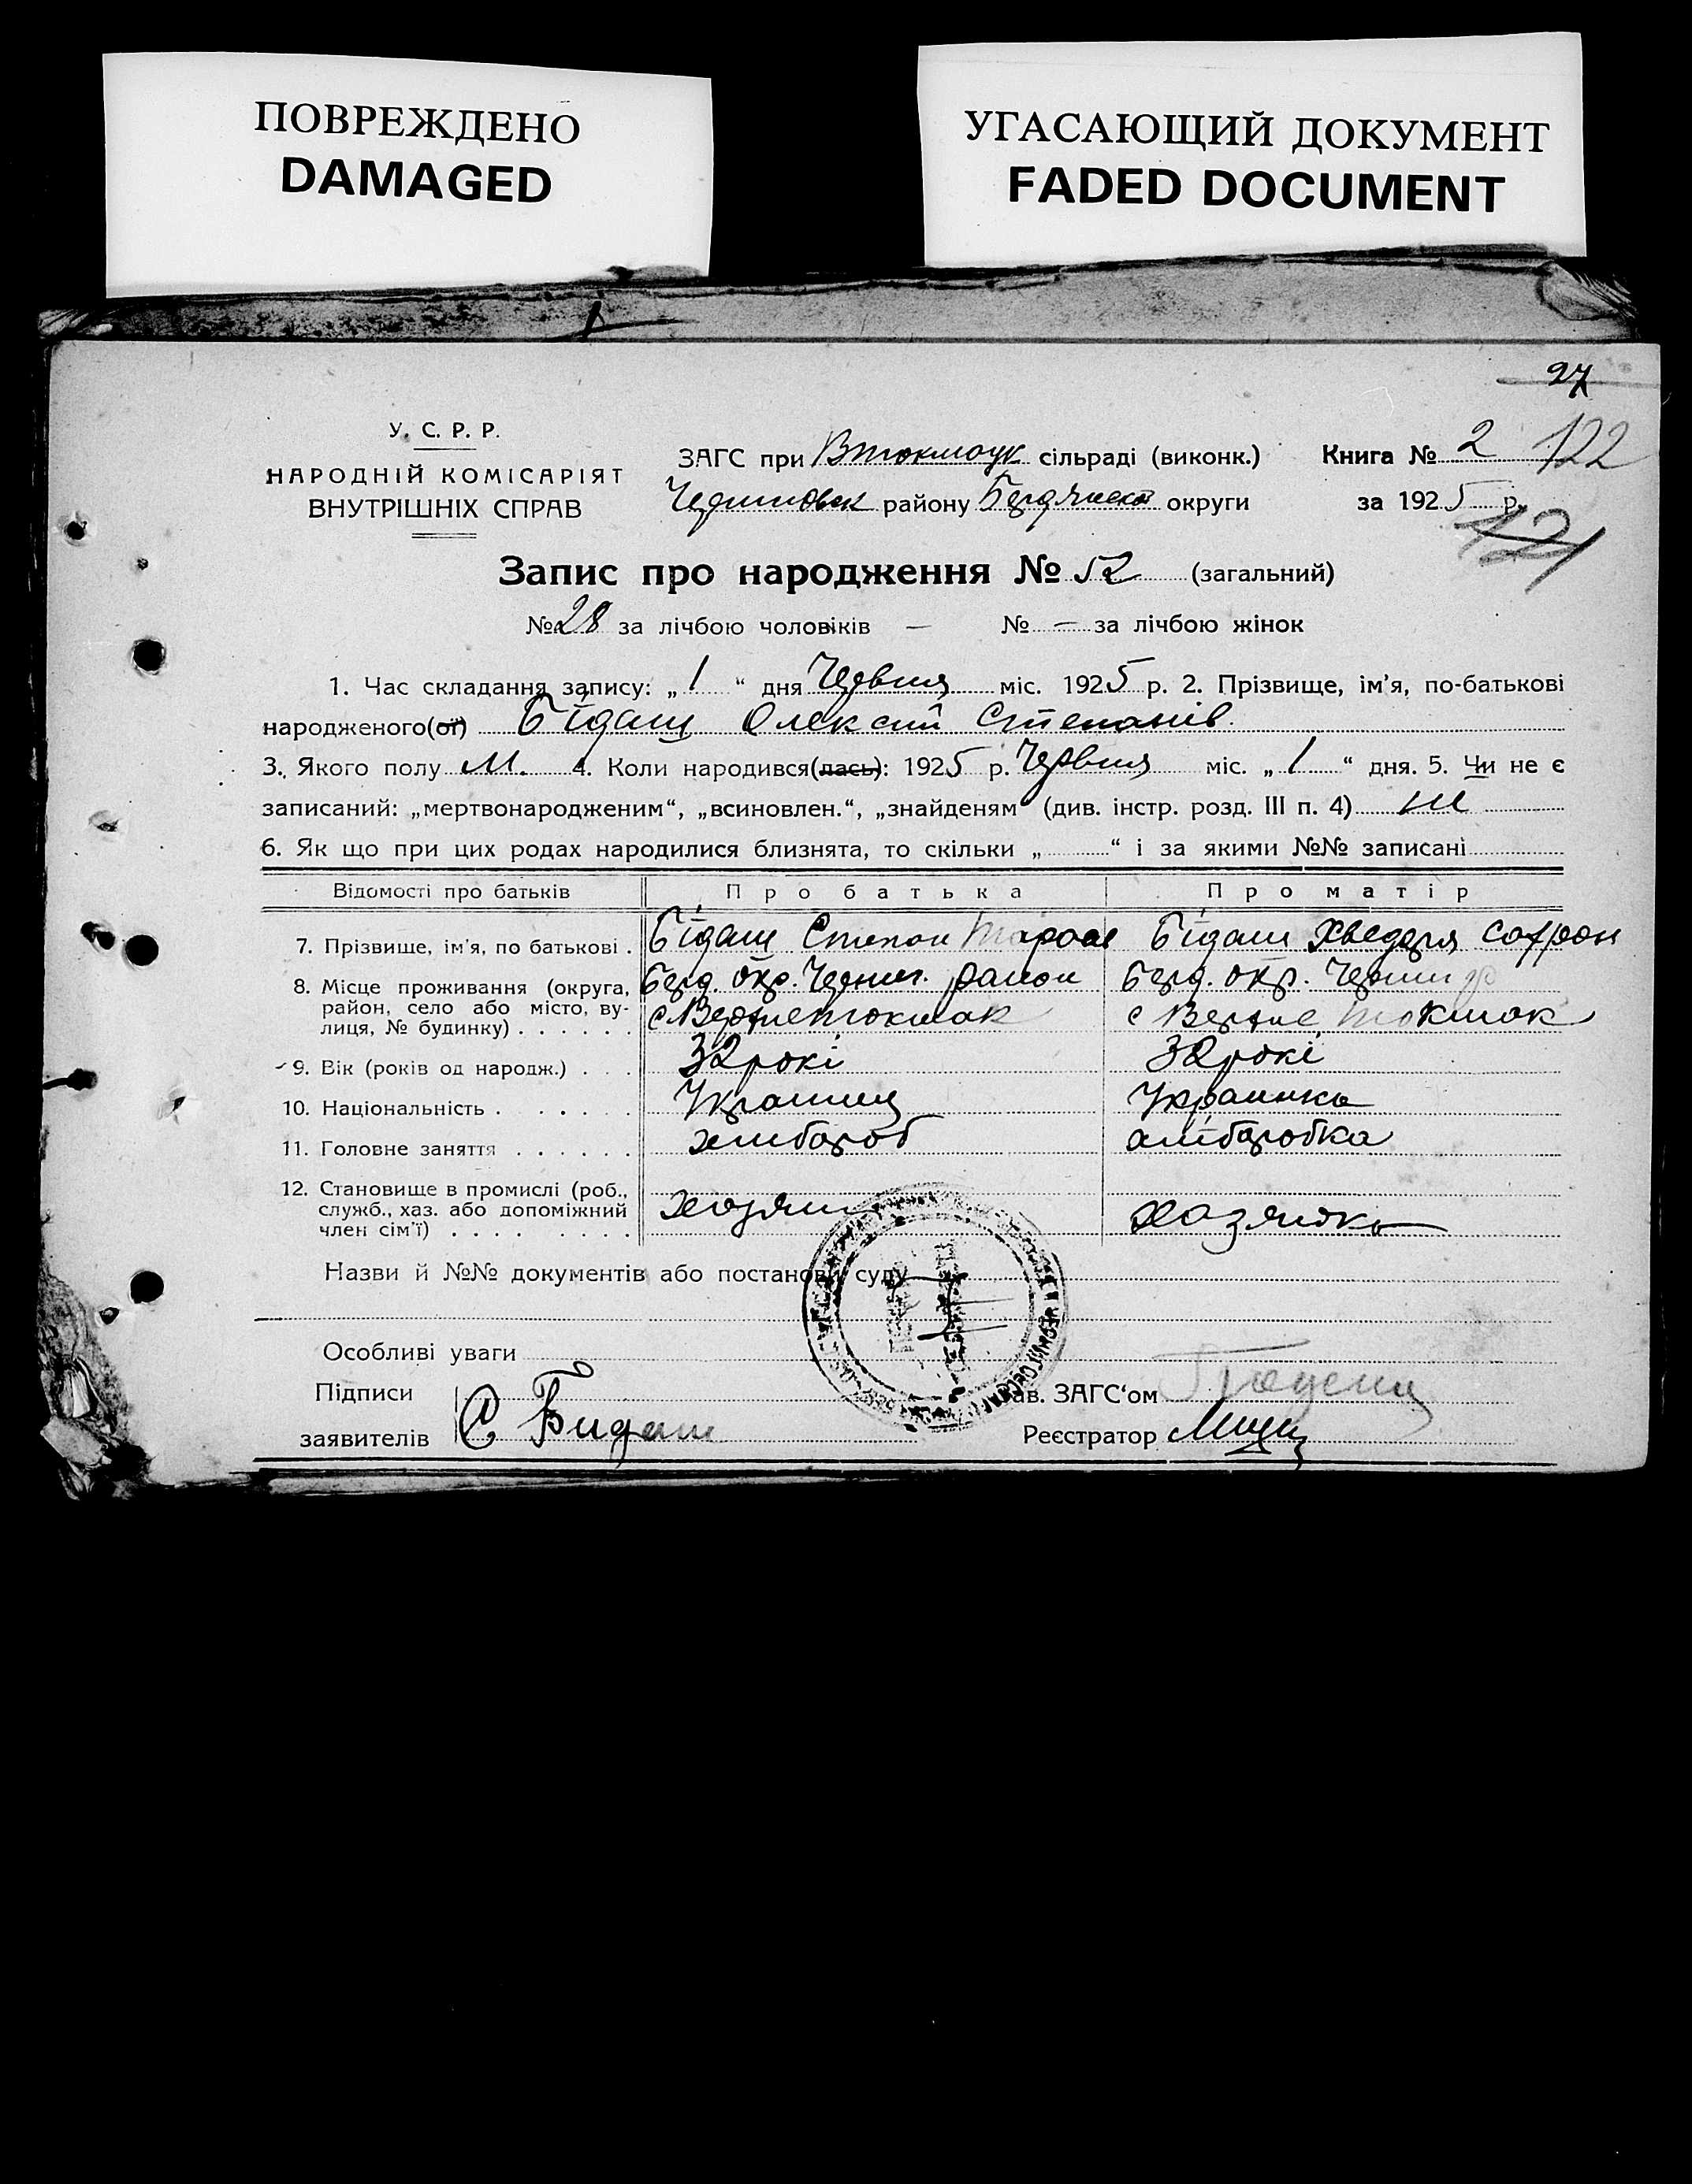 ПОВРЕЖДЕНО
DAMAGED
УГАСАЮЩИЙ ДОКУМЕНТ
FADED DOCUMENT
27
У. С. Р. Р.
НАРОДНІЙ КОМІСАРІЯТ
ВНУТРІШНІХ СПРАВ
ЗАГС при Втокмацк сільраді (виконк.)
района Бердянської округи
Книга № 2 122
за 1925 р.
121
Запис про народження № 52 (загальний)
№ 28 за лічбою чоловіків — № — за лічбою жінок
1. Час складання запису: „ 1 “ дня Червня міс. 1925 р. 2. Прізвище, ім'я, по-батькові
народженого(ої) Бідаш Олексій Степанів
3. Якого полу М. 4. Коли народився(лась): 1925 р. Червня міс. „ 1 “ дня. 5. Чи не є
записаний: „мертвонародженим“, „всиновлен.“, „знайденям (див. інстр. розд. III п. 4) ні
6. Як що при цих родах народилися близнята, то скільки „ “ і за якими №№ записані
Відомості про батьків Про батька Про матір
7. Прізвище, ім'я, по батькові . Бідаш Степан Тарас Бідаш Хведора Софрон
8. Місце проживання (округа, район, село або місто, ву-лиця, № будинку) . . . . . . Берд. окр. Черниг. район Берд. окр. Черниг р
с Верхнетокмак с Верхне Токмак
9. Вік (років од народж.) . . . 32 рокі 32 рокі
10. Національність . . . . . Украинец Украинка
11. Головне заняття . . . . . . хлибороб хліборобка
12. Становище в промислі (роб., служб., хаз. або допоміжний член сім'ї) . . . . . . . . хозяин хозяйка
Назви й №№ документів або постанови суду
Особливі уваги
Підписи
заявителів С Бидаш
Зав. ЗАГС'ом
Реєстратор